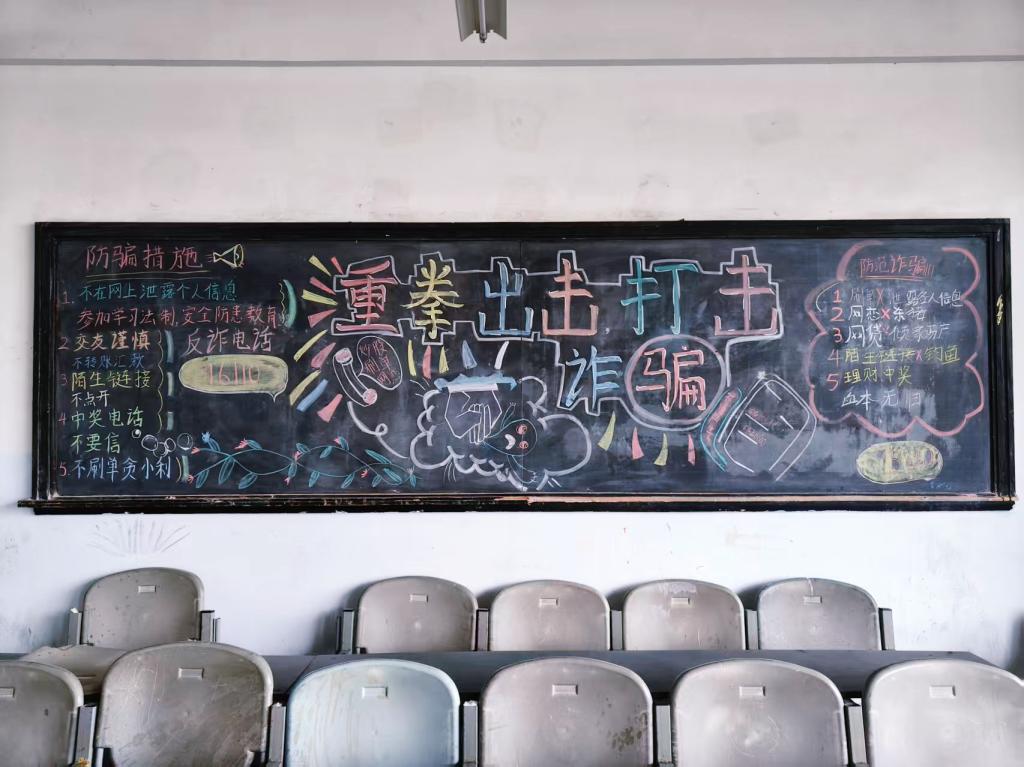 防骗措施
1. 不在网上泄露个人信息
参加学习法制,安全防患教育
2 交友谨慎
不转账汇款
3 陌生链接
不点开
4 中奖电话
不要信
5. 不刷单贪小利
反诈电话
重拳出击,打击
诈骗
防范诈骗!!!
1 泄露个人信息
2 网恋×亲密
3 网贷
4 陌生链接×钓鱼
5 理财中奖
血本无归